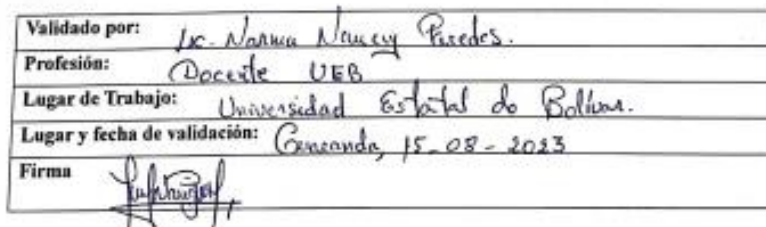 Validado por: Lic. Norma Nancy Paredes.
Profesión: Docente UEB
Lugar de Trabajo: Universidad Estatal de Bolívar.
Lugar y fecha de validación: Guaranda, 15-08-2023
Firma